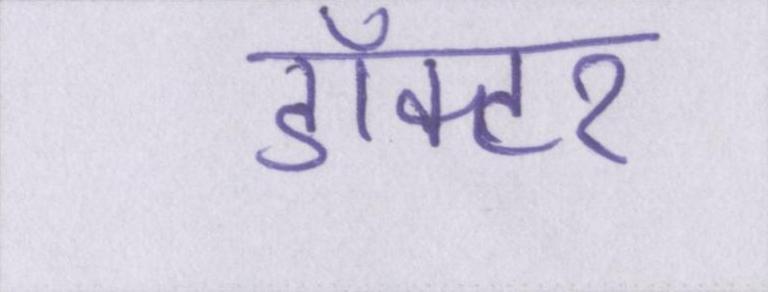 डॉक्टर